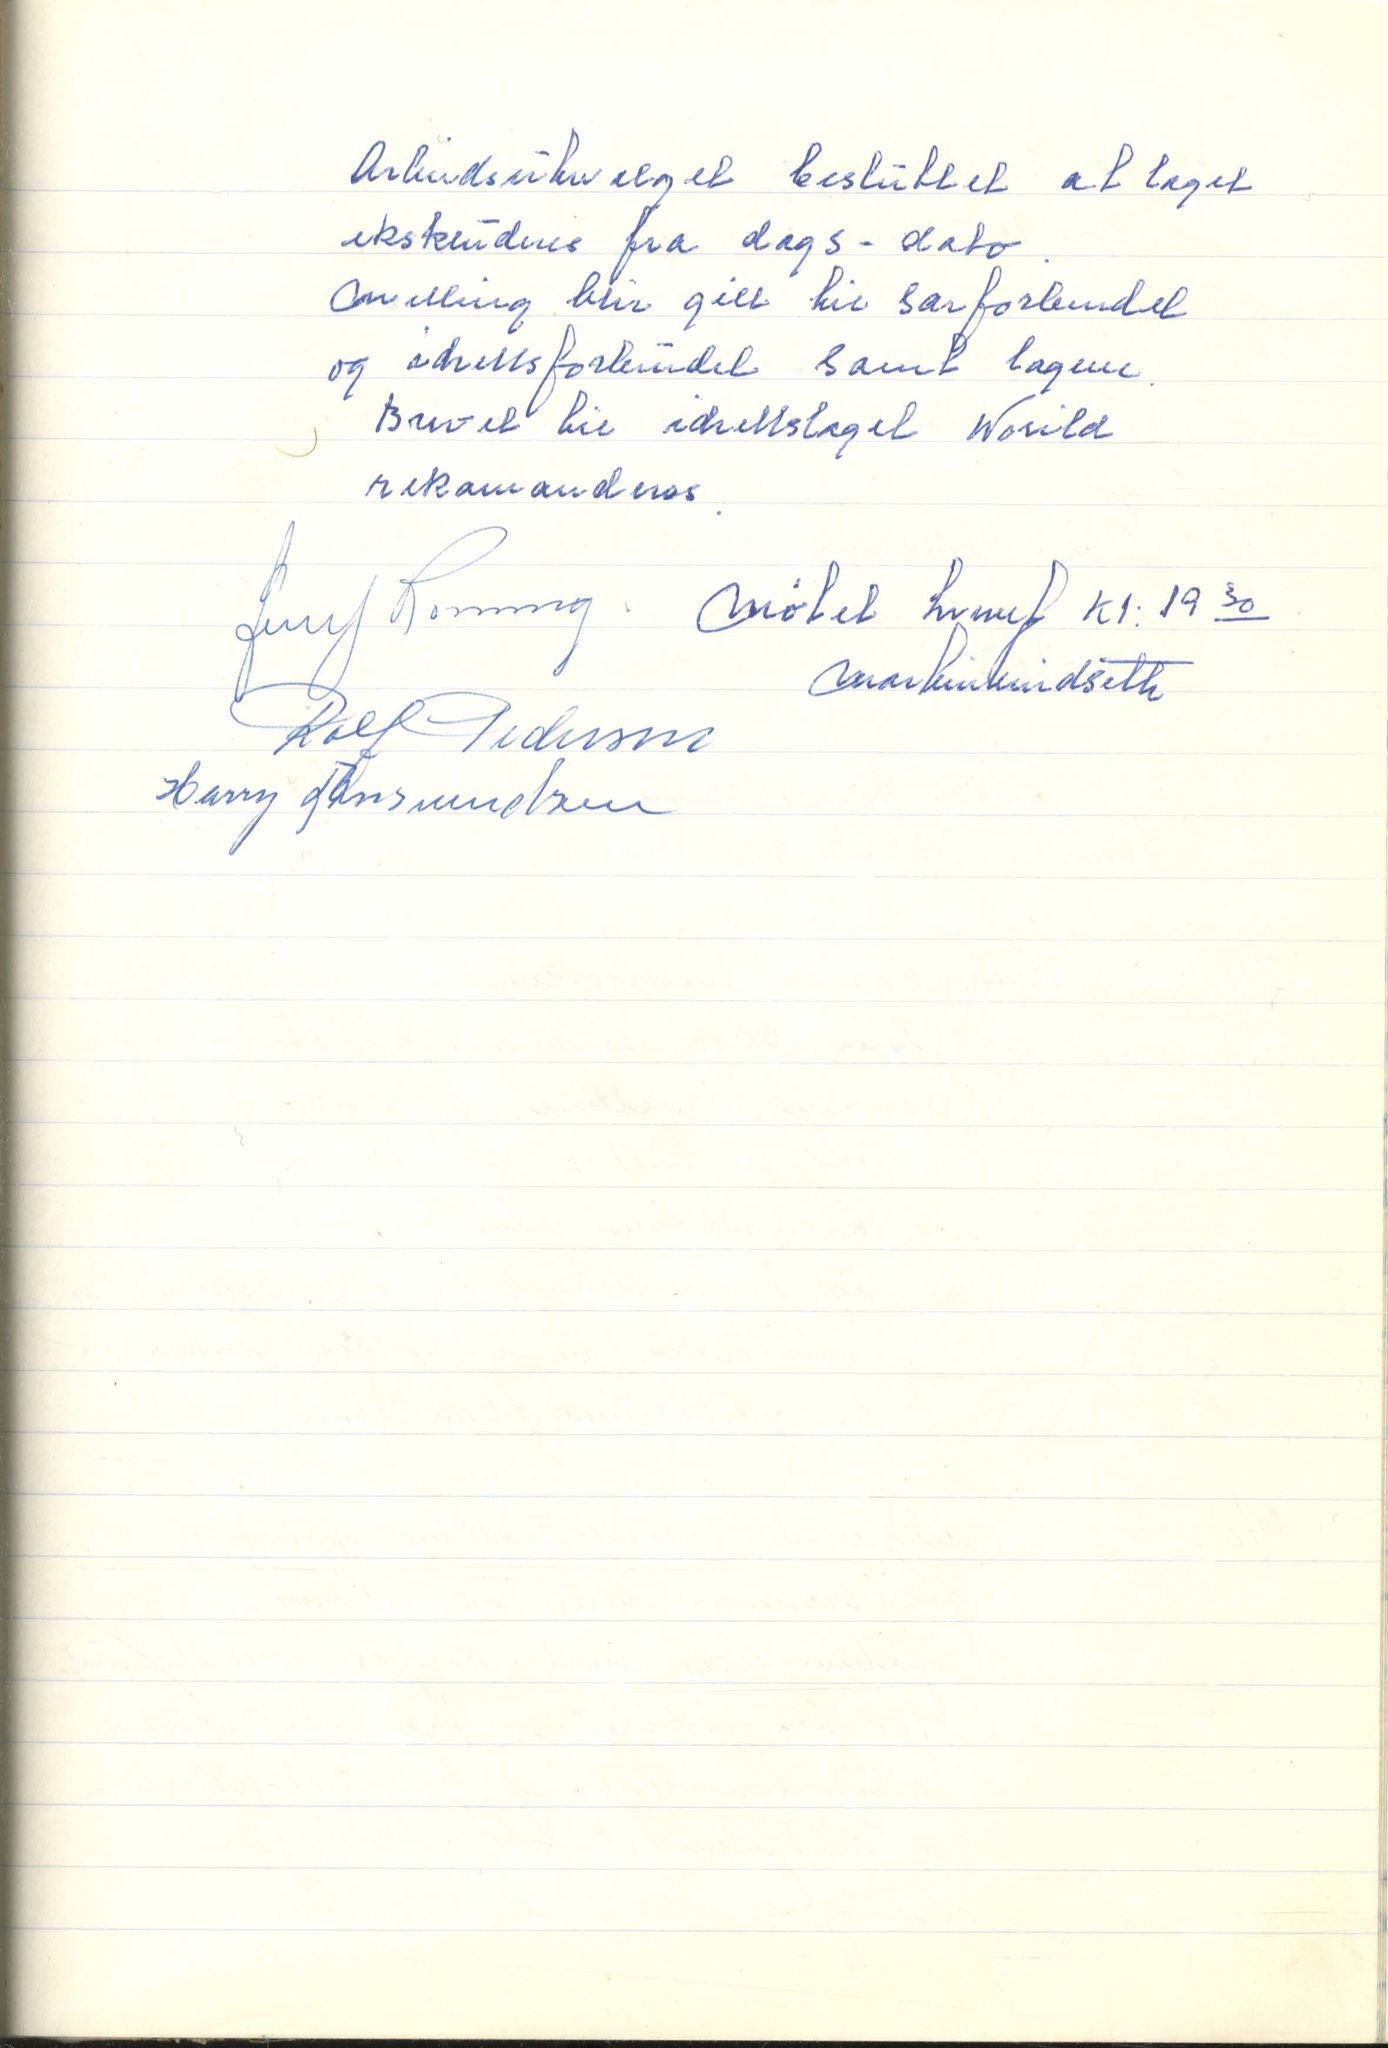 Arbeidsutvalget besluttet at laget
ekskluderes fra dags-dato.
Melling blir gitt til særforbundet
og idrettsforbundet samt lagene.
Brevet til idrettslaget World
rekomanderes.
Rønning. Møtet hevet kl: 19 30
Rolf Pedersen
Harry